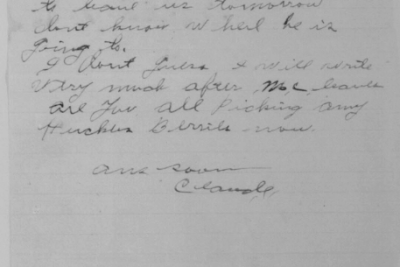 to leave us tomorrow
dont know where he is
going to.
I dont Guess I will write
Very much after Mc leaves
are You all Picking any
Huckles Berrils now.
ans soon
Claude,